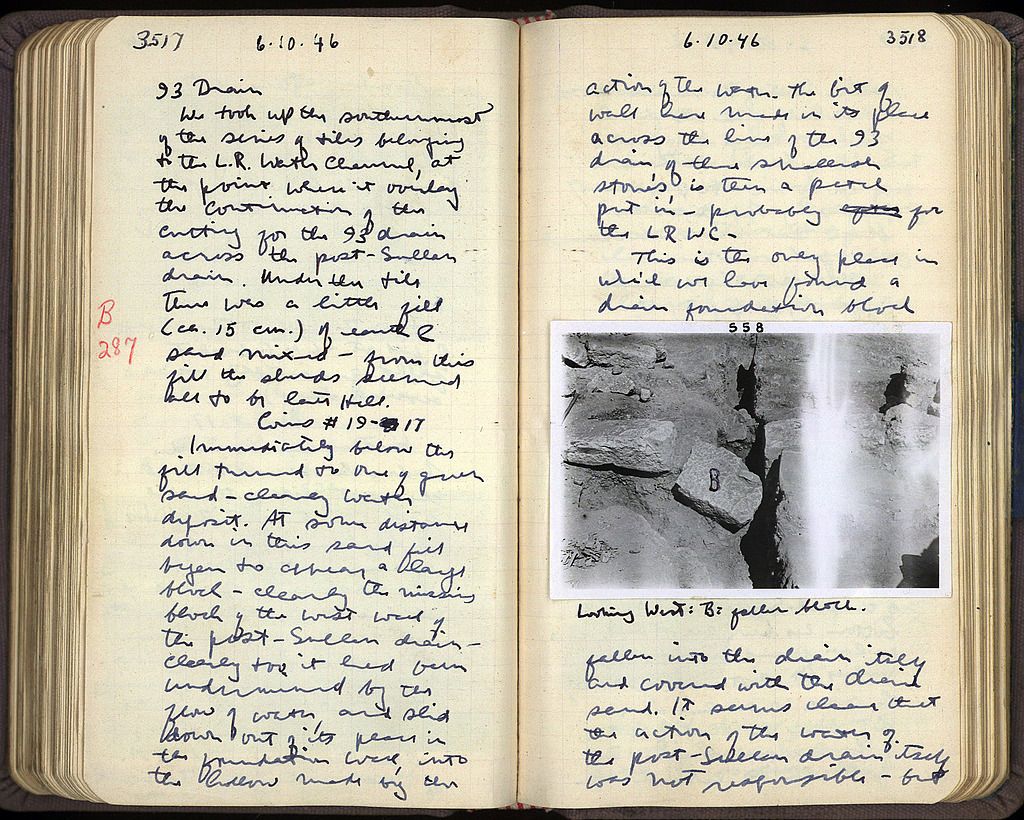 3517 6·10·46
93 Drain
We took up the southernmost
of the series of tiles belonging
to the L.R. Water Channel, at
the point where it overlay
the continuation of the
cutting for the 93 drain
across the post-Sullan
drain. Under the tile
there was a little fill
(ca. 15 cm.) of earth &
sand mixed - from this
fill the sherds seemed
all to be late Hell.
Coins # 19- 17
B
287
Immediately below this
fill turned to one of green
sand - clearly water
deposit. At some distance
down in this sand fill
began to appear a large
block - clearly the missing
block of the west wall of
the post-Sullan drain -
clearly too it had been
undermined by the
flow of water, and slid
down out of its place in
the foundation wall into
the hollow made by the
6·10·46 3518
action of the water. The bit of
wall here made in its place
across the line of the 93
drain, of smallish
stones is then a patch
put in - probably for
the LRWC -
This is the only place in
which we have found a
drain foundation block
558
B
Looking West: B= fallen block.
fallen into the drain itself
and covered with the drain
sand. It seems clear that
the action of the water of
the post-Sullan drain itself
was not responsible - but